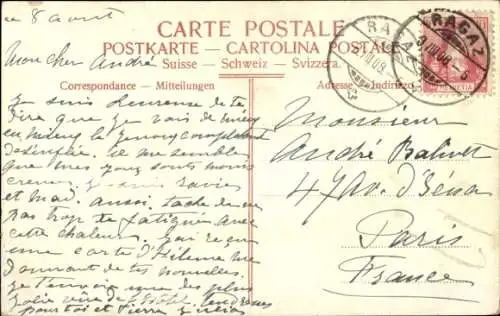 ce 8 août
CARTE POSTALE
POSTKARTE - CARTOLINA POSTALE
Suisse - Schweiz - Svizzera.
Correspondance - Mitteilungen
Adresse - Indirizzo
RAGAZ
RAGAZ
HELVETIA
Mon cher André
Je suis heureuse de te
dire que je vais de mieux
en mieux le genou complètement
désenflé. il me semble
que mes yeux sont moins
creux. Je suis ravie
et mad. aussi, tâche de ne
pas trop te fatiguer avec
cette chaleur. J'ai reçu
une carte d'Hélène me
donnant de tes nouvelles.
Je t'envoie une des plus
jolie vue de tendresses
pour toi et Pierre
Monsieur
André Balivet
47 Av. d'Iéna
Paris
France